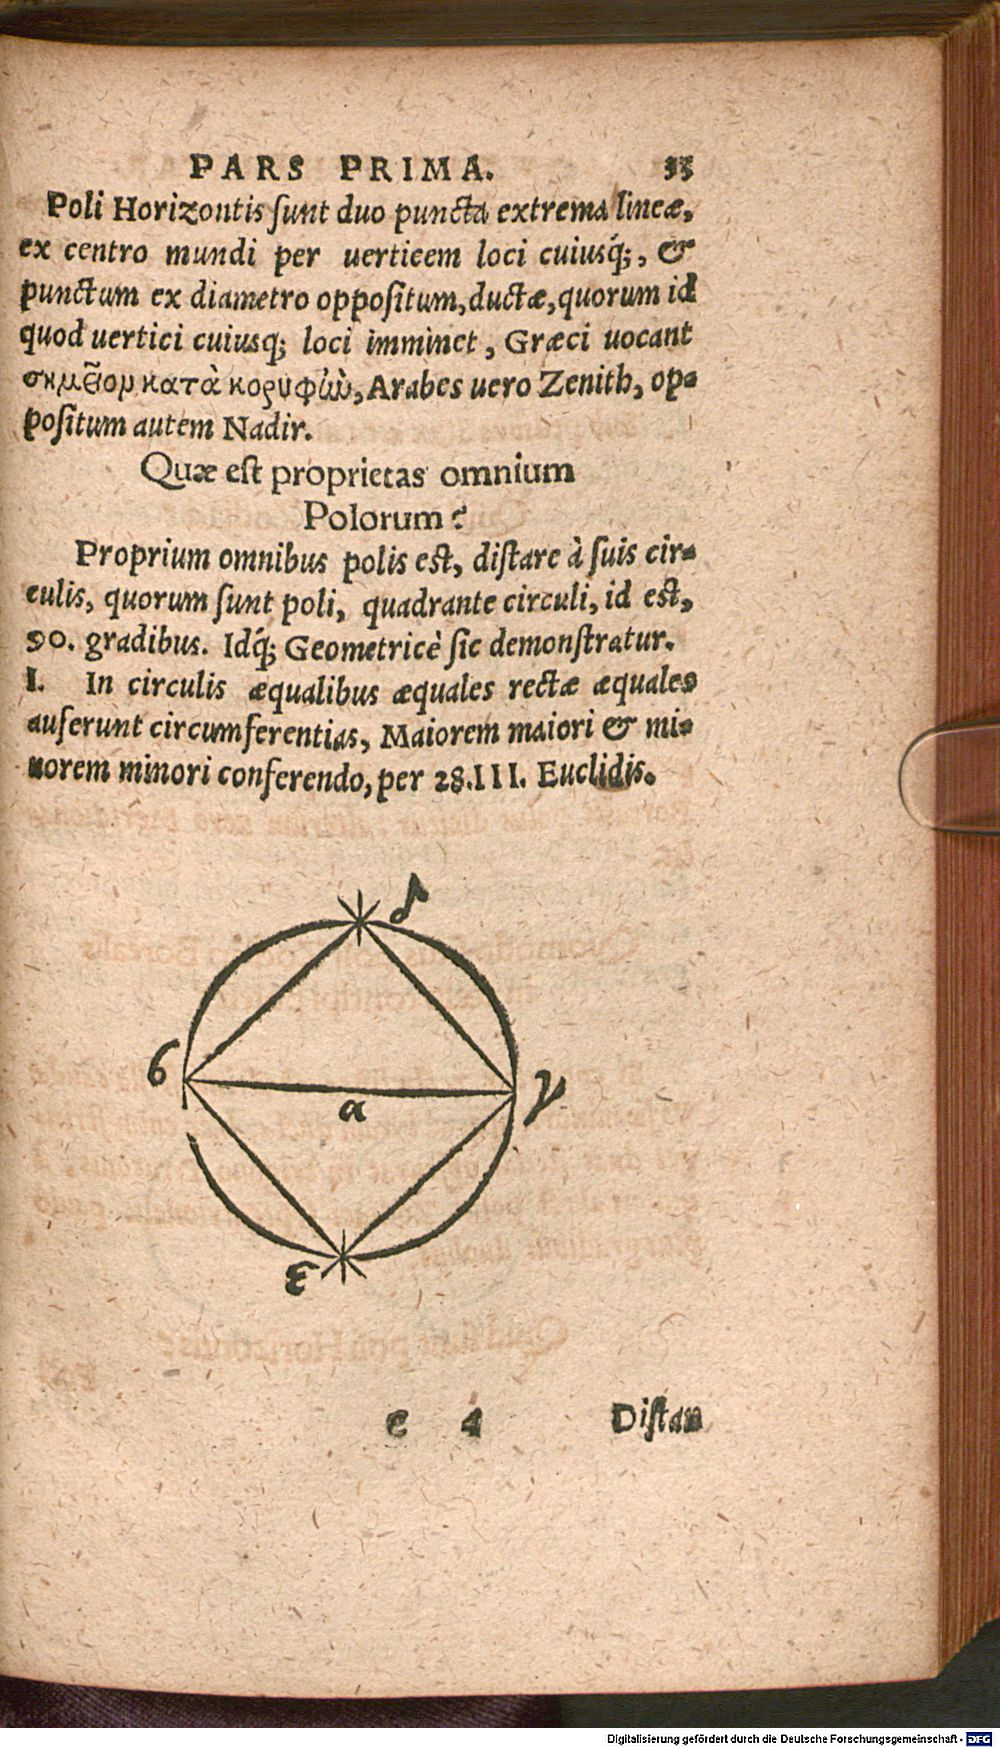 PARS PRIMA. 35
Poli Horizontis sunt duo puncta extrema lineæ,
ex centro mundi per uerticem loci cuiusq́;, &
punctum ex diametro oppositum, ductæ, quorum id
quod uertici cuiusq; loci imminet, Græci uocant
σημεῖον κατὰ κορυφὼ, Arabes uero Zenith, op-
positum autem Nadir.
Quæ est proprietas omnium
Polorum?
Proprium omnibus polis est, distare à suis cir-
culis, quorum sunt poli, quadrante circuli, id est,
90. gradibus. Idq́; Geometricè sic demonstratur.
I. In circulis æqualibus æquales rectæ æquales
auferunt circumferentias, Maiorem maiori & mi-
norem minori conferendo, per 28.III. Euclidis.
δ
ϐ
α
γ
ε
e 4 Distan
Digitalisierung gefördert durch die Deutsche Forschungsgemeinschaft - DFG